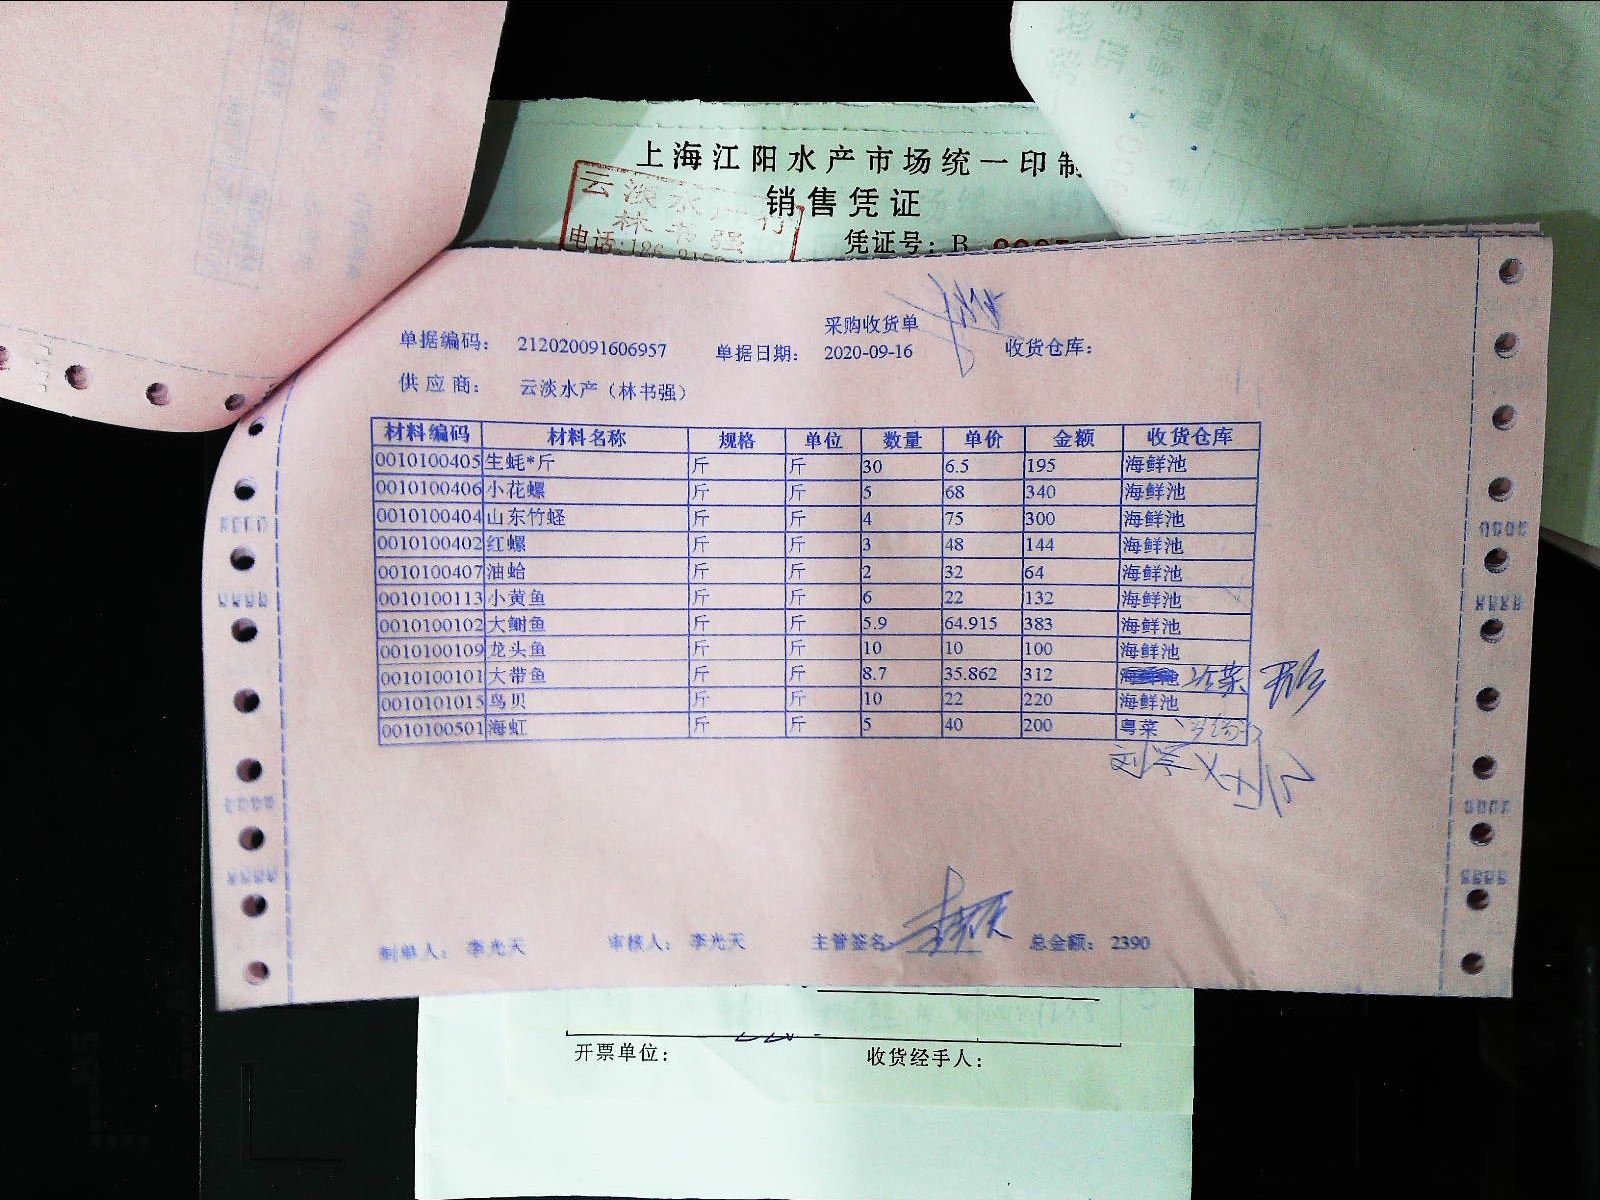 上海江阳水产市场统一印制
销售凭证
云淡水产行
林书强
电话:
凭证号: B
采购收货单
单据编码: 212020091606957 单据日期: 2020-09-16 收货仓库:
供应商: 云淡水产（林书强）
材料编码 材料名称 规格 单位 数量 单价 金额 收货仓库
0010100405 生蚝*斤 斤 斤 30 6.5 195 海鲜池
0010100406 小花螺 斤 斤 5 68 340 海鲜池
0010100404 山东竹蛏 斤 斤 4 75 300 海鲜池
0010100402 红螺 斤 斤 3 48 144 海鲜池
0010100407 油蛤 斤 斤 2 32 64 海鲜池
0010100113 小黄鱼 斤 斤 6 22 132 海鲜池
0010100102 大鲥鱼 斤 斤 5.9 64.915 383 海鲜池
0010100109 龙头鱼 斤 斤 10 10 100 海鲜池
0010100101 大带鱼 斤 斤 8.7 35.862 312 冷菜
0010101015 鸟贝 斤 斤 10 22 220 海鲜池
0010100501 海虹 斤 斤 5 40 200 粤菜
制单人: 李光天 审核人: 李光天 主管签名: 总金额: 2390
开票单位: 收货经手人: